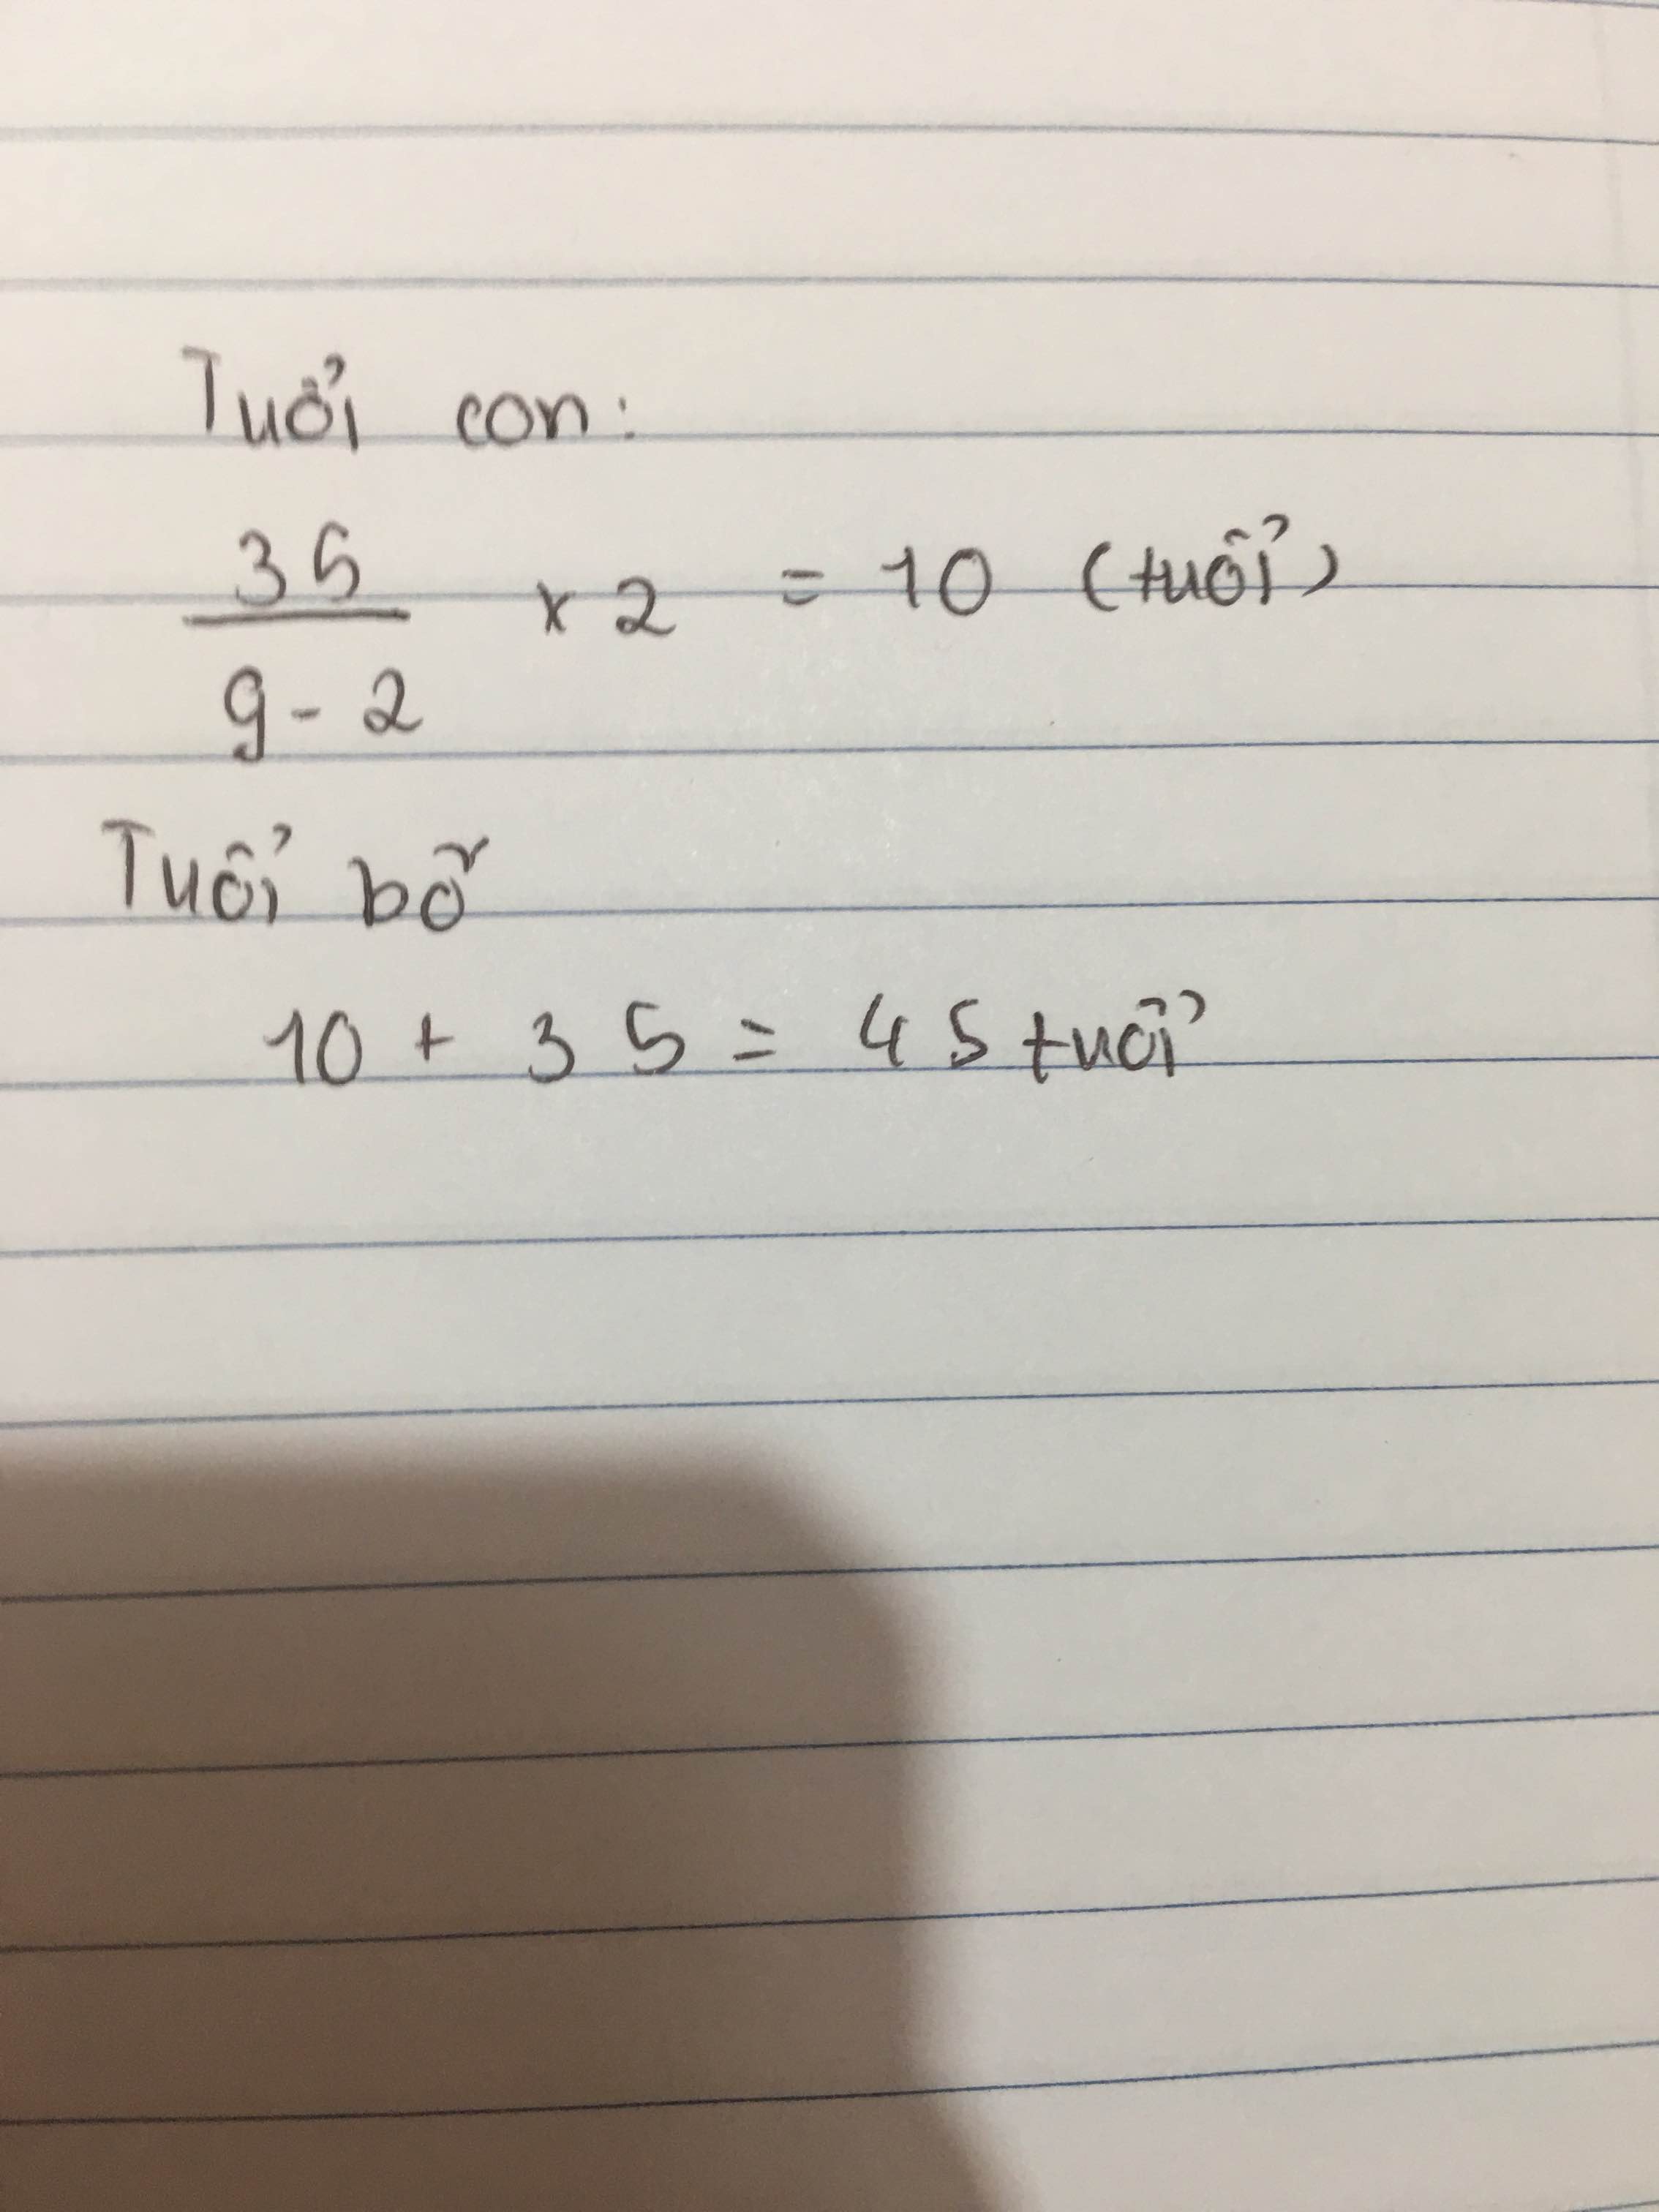 Tuổi con:
35
9 - 2
x 2 = 10 (tuổi)
Tuổi bố
10 + 35 = 45 tuổi